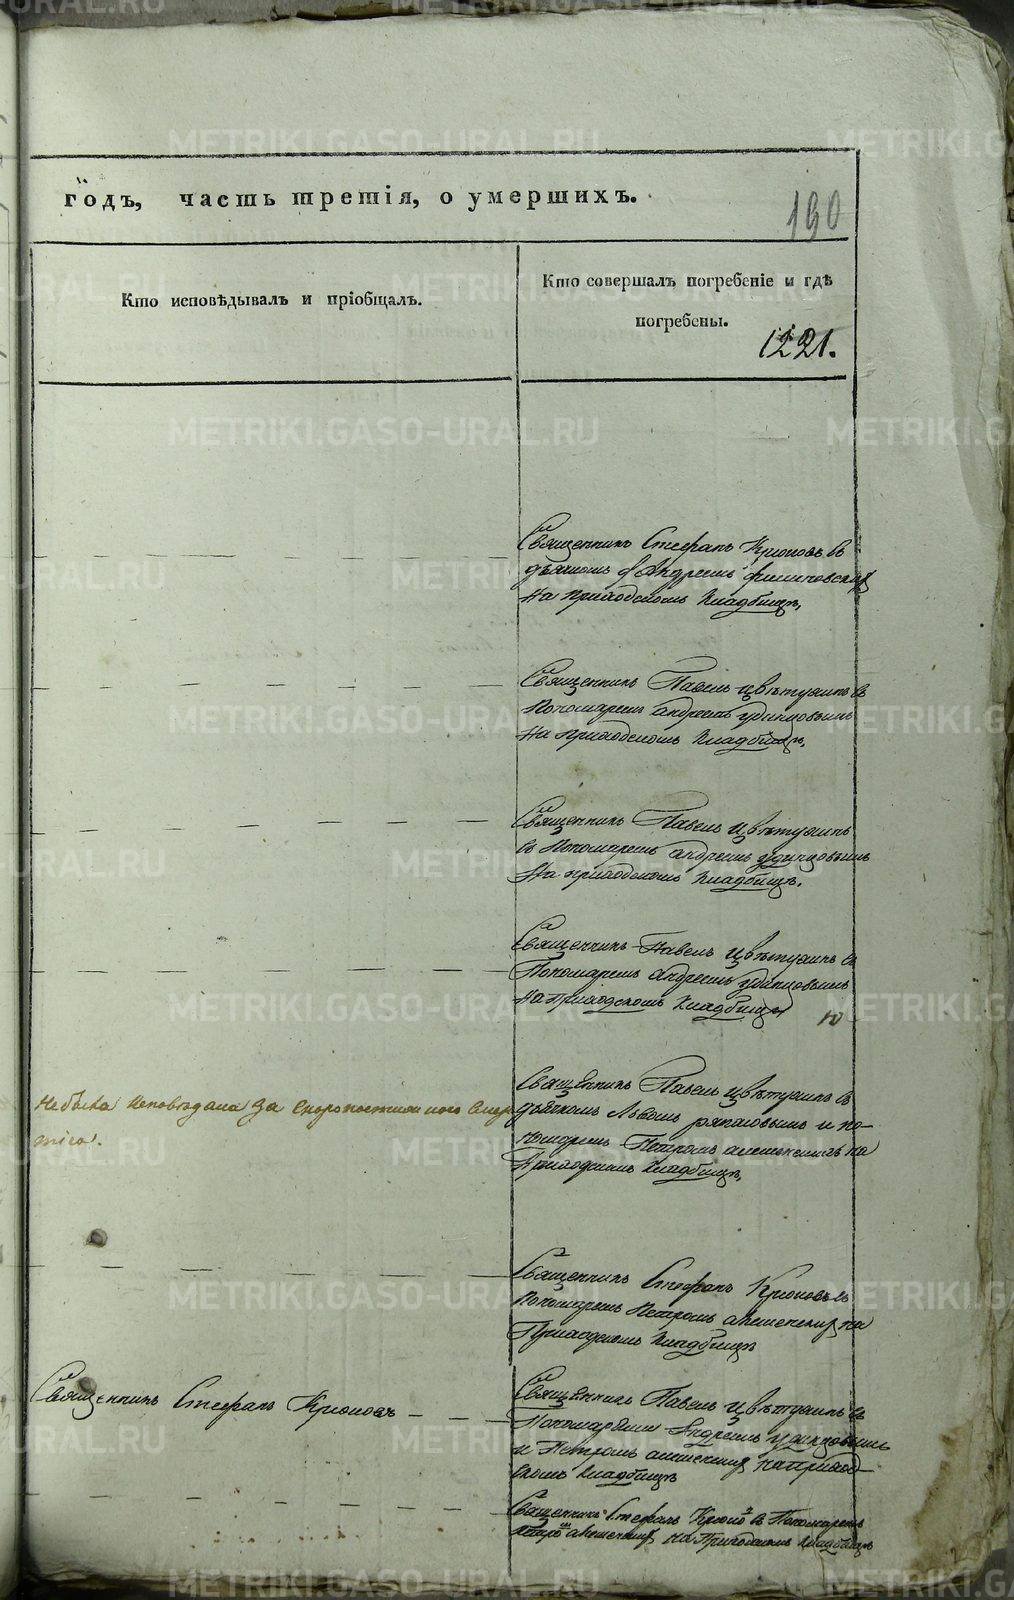 годъ, часть третія, о умершихъ.
190
Кто исповѣдывалъ и пріобщалъ.
Кто совершалъ погребеніе и гдѣ
погребены.
1221.
Священникъ Стефанъ Крюковъ съ
дьячкомъ Андреемъ
на приходскомъ кладбищѣ,
Священникъ Павелъ Цвѣтухинъ съ
Пономаремъ андреемъ удинцовымъ
на приходскомъ кладбищѣ,
Священникъ Павелъ Цвѣтухинъ
съ Пономаремъ андреемъ удинцовымъ
На приходскомъ кладбищѣ.
Священникъ Павелъ Цвѣтухинъ съ
Пономаремъ андреемъ удинцовымъ
на приходскомъ кладбищѣ
10
Священникъ Павелъ Цвѣтухинъ съ
Не была исповѣдана за скоропостижного смер
дьячкомъ Львомъ и по-
тію.
номаремъ Петромъ на
Приходскомъ кладбищѣ,
Священникъ Стефанъ Крюковъ съ
пономаремъ Петромъ на
Приходскомъ кладбищѣ
Священникъ Стефанъ Крюковъ
Священникъ Павелъ Цвѣтухинъ съ
Пономарями Андреемъ удинцовымъ
и Петромъ на приход-
скомъ кладбищѣ
Священникъ Стефанъ Крюко въ съ Пономаремъ
Петро на Приходскомъ кладбищѣ
METRIKI.GASO-URAL.RU